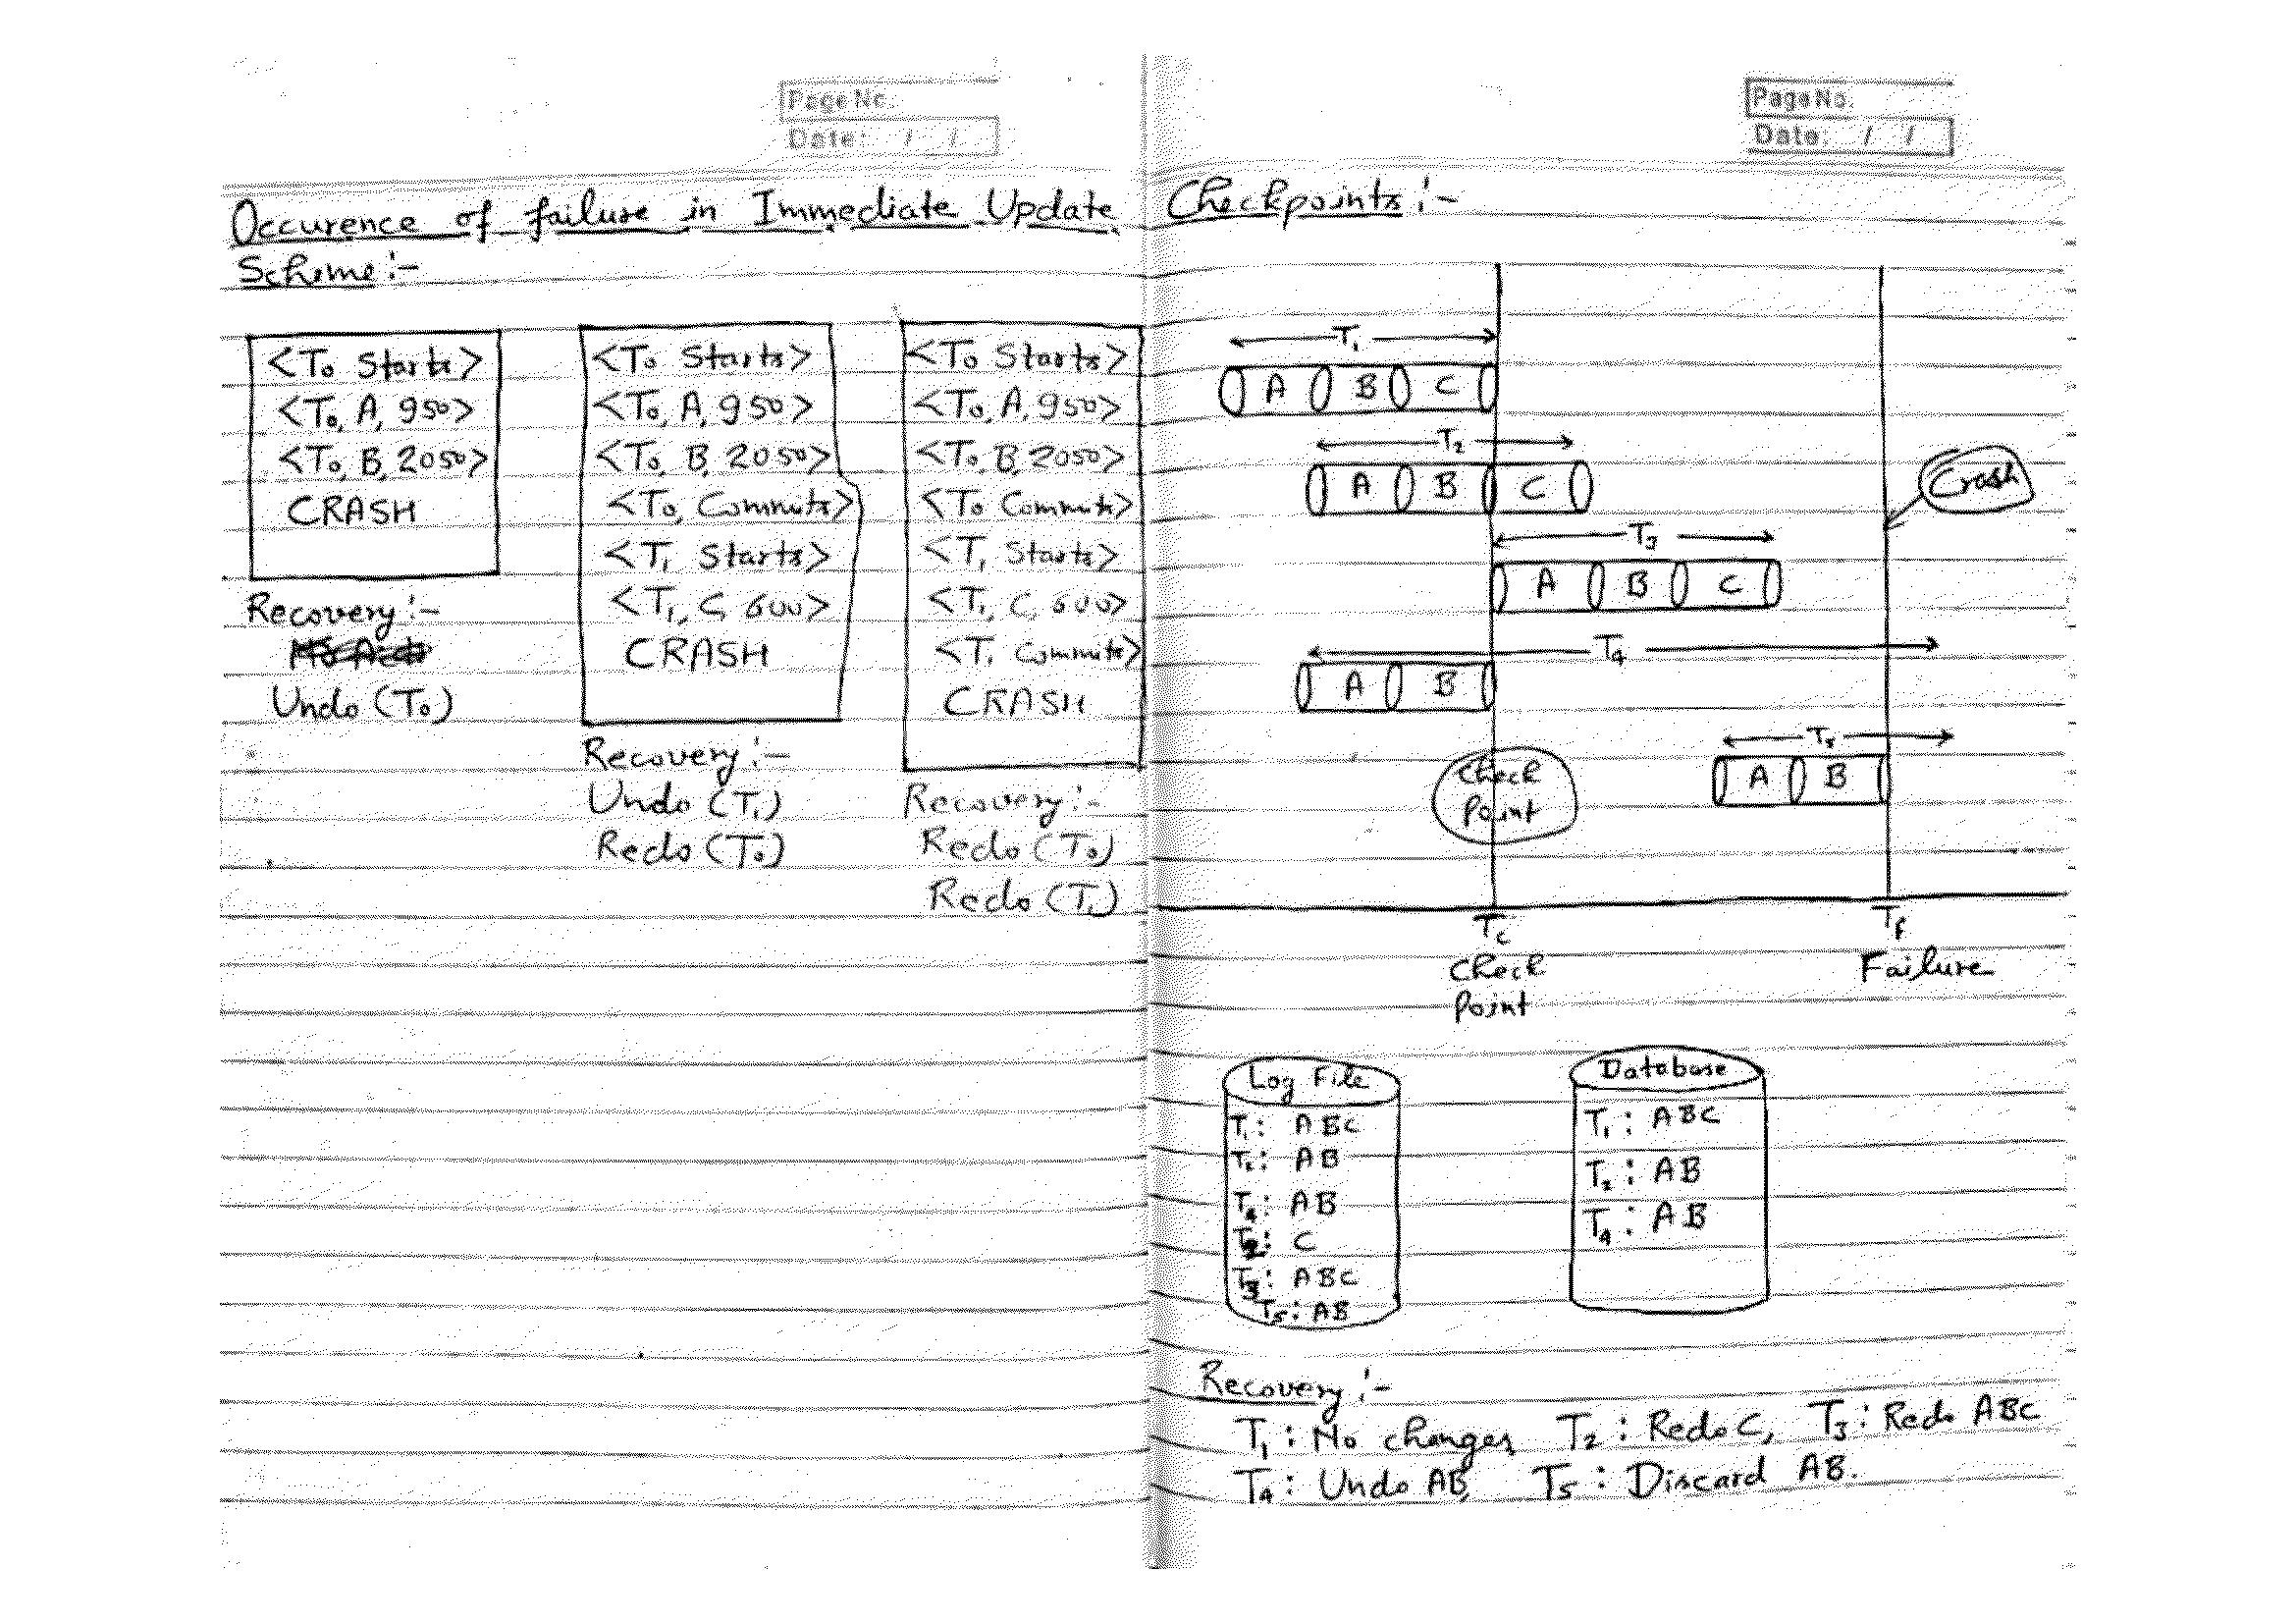 Page No.
Date: / /
Occurence of failure in Immediate Update
Scheme :-
<T₀ Starts>
<T₀, A, 950>
<T₀, B, 2050>
CRASH
Recovery :-
Undo (T₀)
<T₀ Starts>
<T₀, A, 950>
<T₀, B, 2050>
<T₀, Commits>
<T₁ Starts>
<T₁, C, 600>
CRASH
Recovery :-
Undo (T₁)
Redo (T₀)
<T₀ Starts>
<T₀, A, 950>
<T₀, B, 2050>
<T₀ Commits>
<T₁ Starts>
<T₁, C, 600>
<T₁ Commits>
CRASH
Recovery :-
Redo (T₀)
Redo (T₁)
Page No.
Date: / /
Checkpoints :-
T₁
A B C
T₂
A B C
Crash
T₃
A B C
T₄
A B
T₅
A B
Check
Point
Tc
Check
Point
Tf
Failure
Log File
T₁: ABC
T₂: AB
T₄: AB
T₂: C
T₃: ABC
T₅: AB
Database
T₁: ABC
T₂: AB
T₄: AB
Recovery :-
T₁: No changes, T₂: Redo C, T₃: Redo ABC
T₄: Undo AB, T₅: Discard AB.